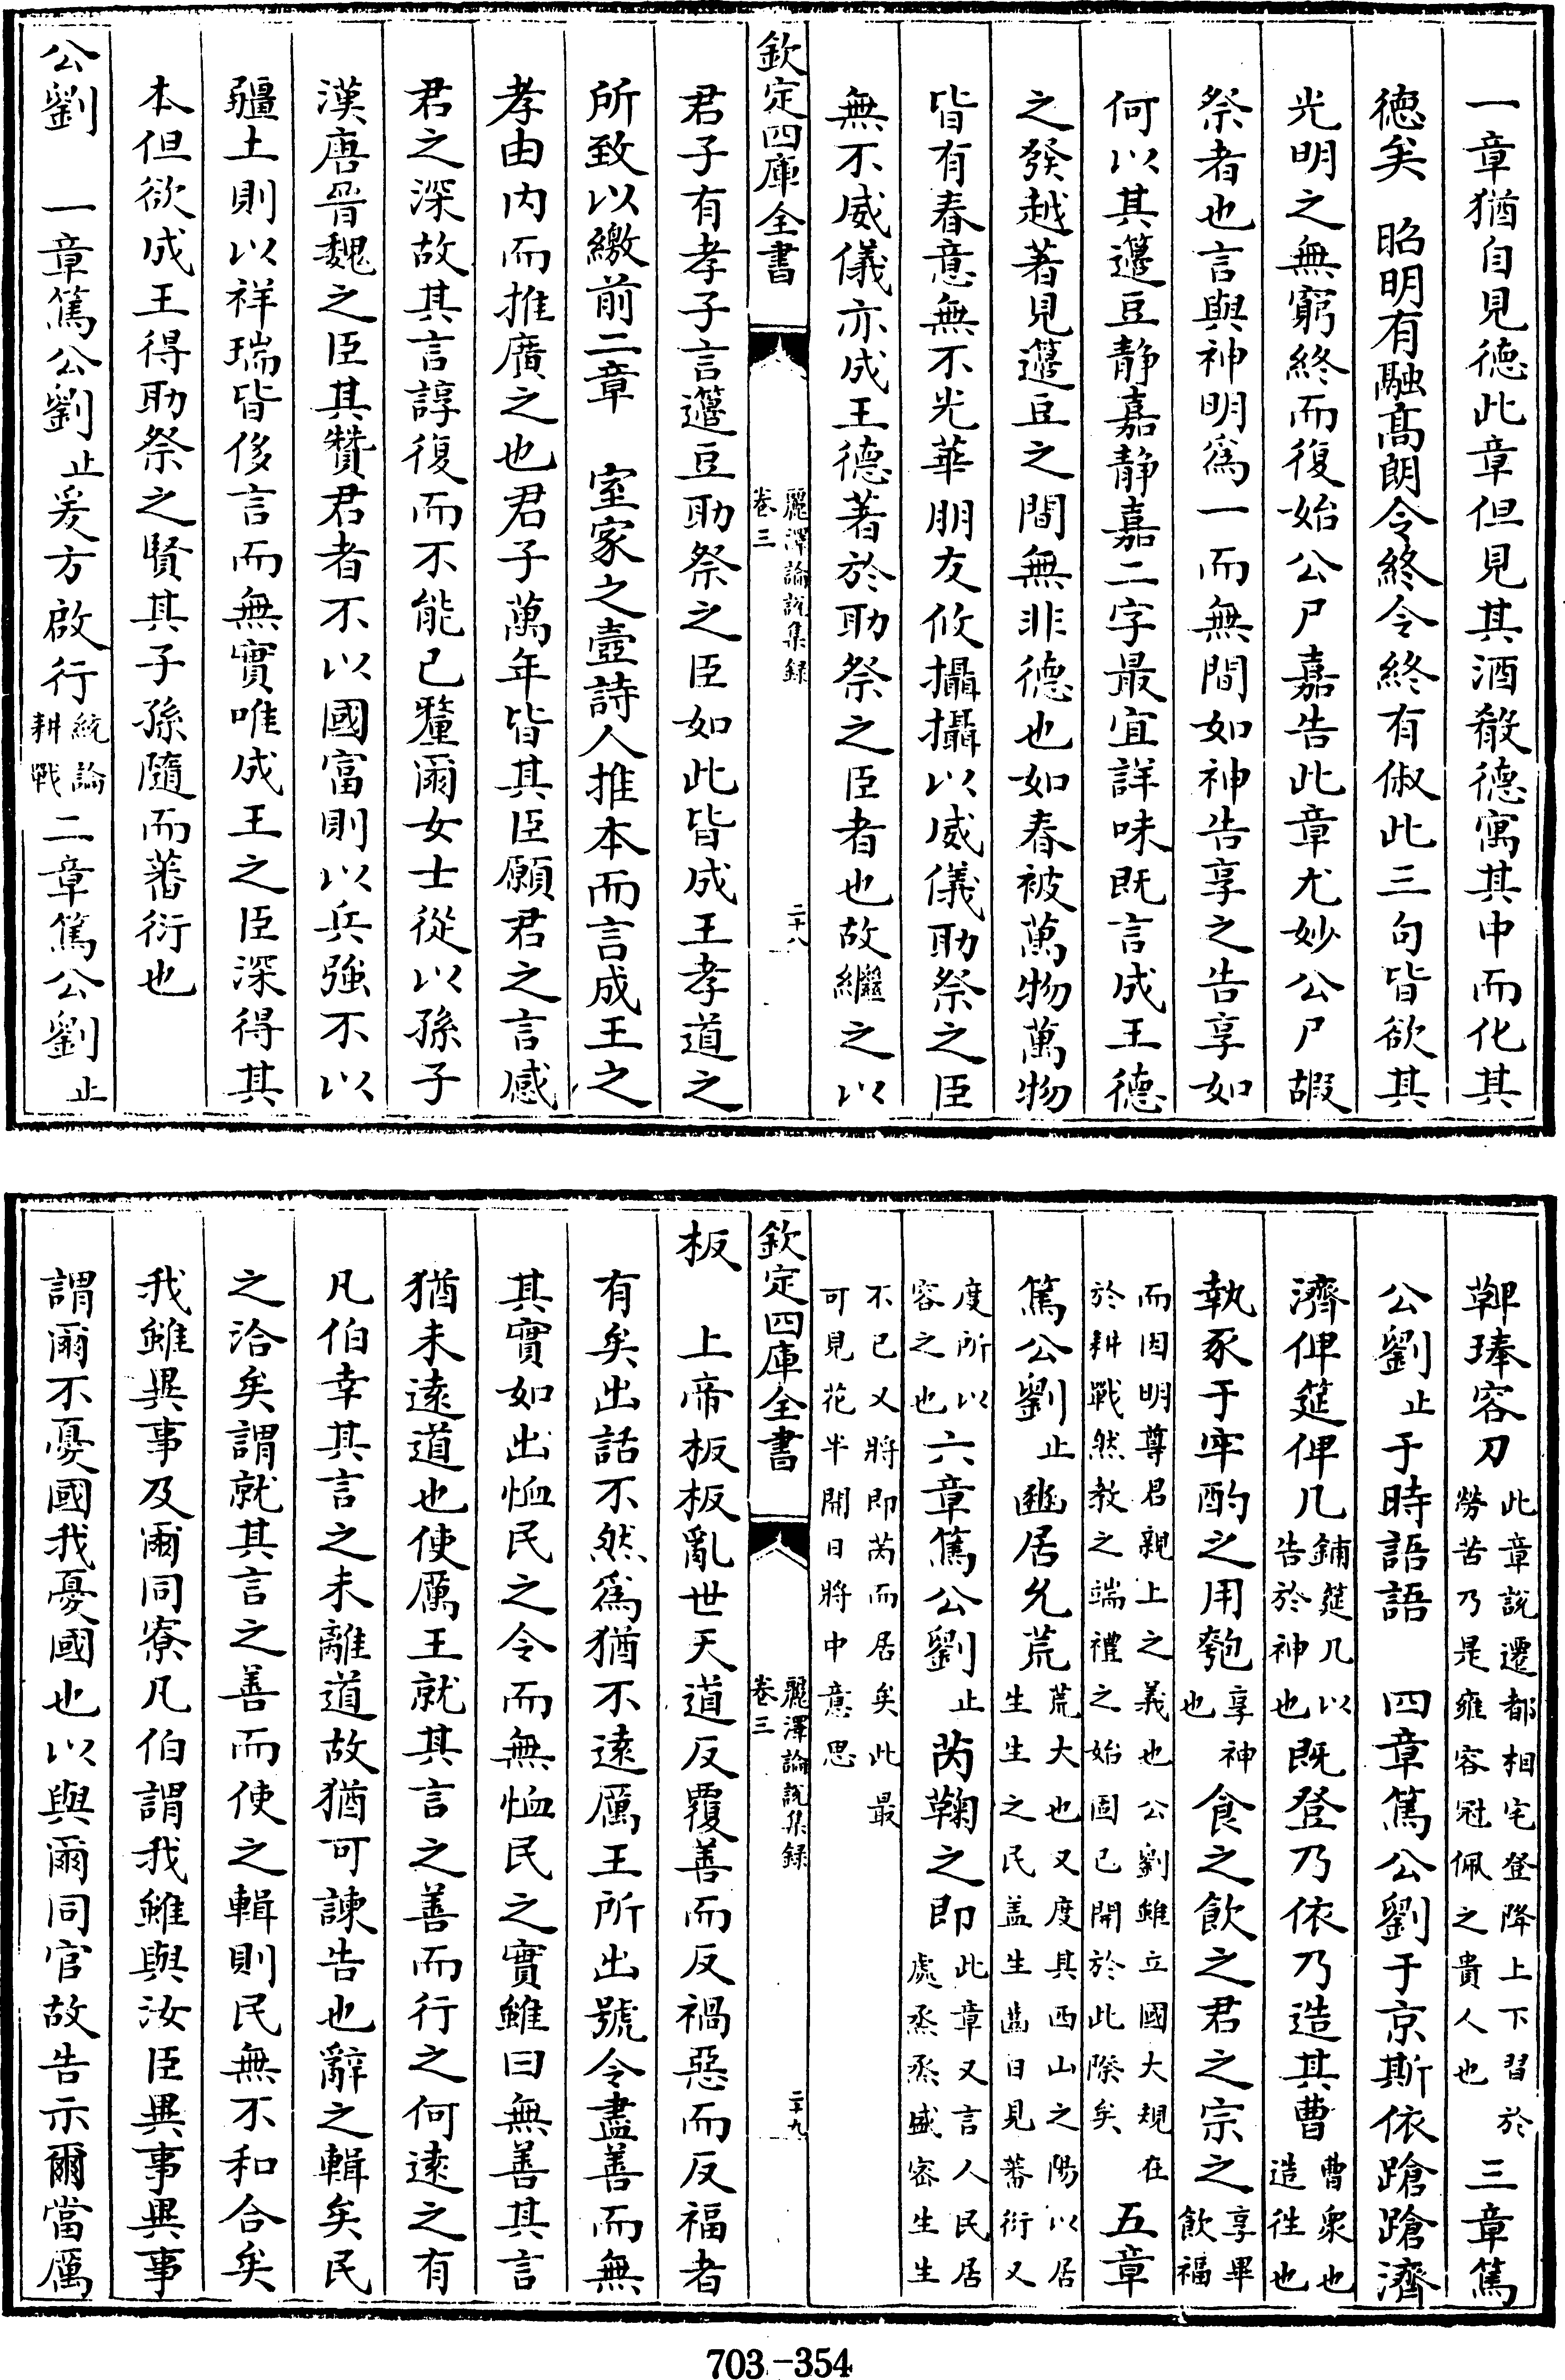 一章猶自見徳此章但見其酒殽德寓其中而化其
德矣　昭明有融髙朗令終令終有俶此三句皆欲其
光明之無窮終而復始公尸嘉告此章尤妙公尸嘏
祭者也言與神明爲一而無間如神告享之告享如
何以其籩豆静嘉静嘉二字最宜詳味既言成王德
之發越著見籩豆之間無非德也如春被萬物萬物
皆有春意無不光華朋友攸攝攝以威儀助祭之臣
無不威儀亦成王德著於助祭之臣者也故繼之以
欽定四庫全書
麗澤論説集録
卷三
二十八
君子有孝子言籩豆助祭之臣如此皆成王孝道之
所致以繳前二章　室家之壼詩人推本而言成王之
孝由内而推廣之也君子萬年皆其臣願君之言感
君之深故其言諄復而不能已釐爾女士從以孫子
漢唐晉魏之臣其贊君者不以國富則以兵強不以
疆土則以祥瑞皆侈言而無實唯成王之臣深得其
本但欲成王得助祭之賢其子孫隨而蕃衍也
公劉　一章篤公劉止爰方啟行統論耕戰二章篤公劉止
鞞琫容刀此章說遷都相宅登降上下習於勞苦乃是雍容冠佩之貴人也三章篤
公劉止于時語語　四章篤公劉于京斯依蹌蹌濟
濟俾筵俾几鋪筵几以告於神也既登乃依乃造其曹曹衆也造徃也
執豕于牢酌之用匏享神也食之飲之君之宗之享畢飲福
而因明尊君親上之義也公劉雖立國大規在於耕戰然教之端禮之始固已開於此際矣五章
篤公劉止豳居允荒荒大也又度其西山之陽以居生生之民盖生齒日見蕃衍又
度所以容之也六章篤公劉止芮鞫之即此章又言人民居處烝烝盛密生生
不已又將即芮而居矣此最可見花半開日將中意思
欽定四庫全書
麗澤論説集録
卷三
二十九
板　上帝板板亂世天道反覆善而反禍惡而反福者
有矣出話不然爲猶不逺厲王所出號令盡善而無
其實如出恤民之令而無恤民之實雖曰無善其言
猶未逺道也使厲王就其言之善而行之何逺之有
凡伯幸其言之未離道故猶可諫告也辭之輯矣民
之洽矣謂就其言之善而使之輯則民無不和合矣
我雖異事及爾同寮凡伯謂我雖與汝臣異事異事
謂爾不憂國我憂國也以與爾同官故告示爾當厲
703-354